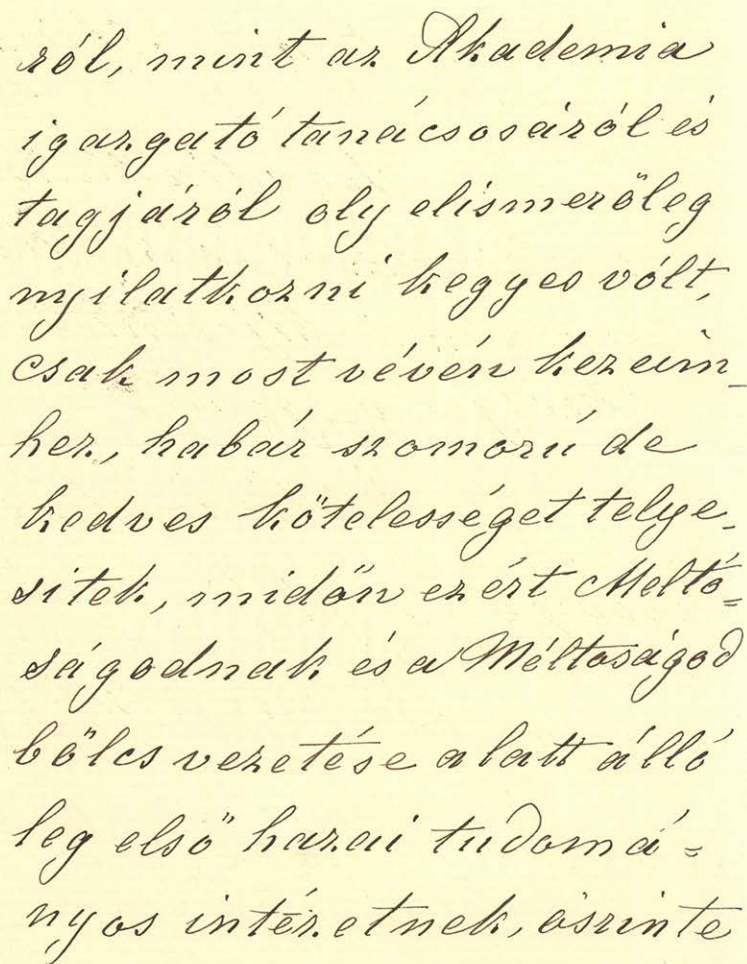 ról, mint az Akademia
igazgató tanácsosáról és
tagjáról oly elismerőleg
nyilatkozni kegyes vólt,
csak most vévén kezeim-
hez, habár szomorú de
kedves kötelességet telye-
sitek, midőn ezért Méltó=
ságodnak és a Méltoságod
bölcs vezetése alatt álló
leg első hazai tudomá=
nyos intézetnek, őszinte